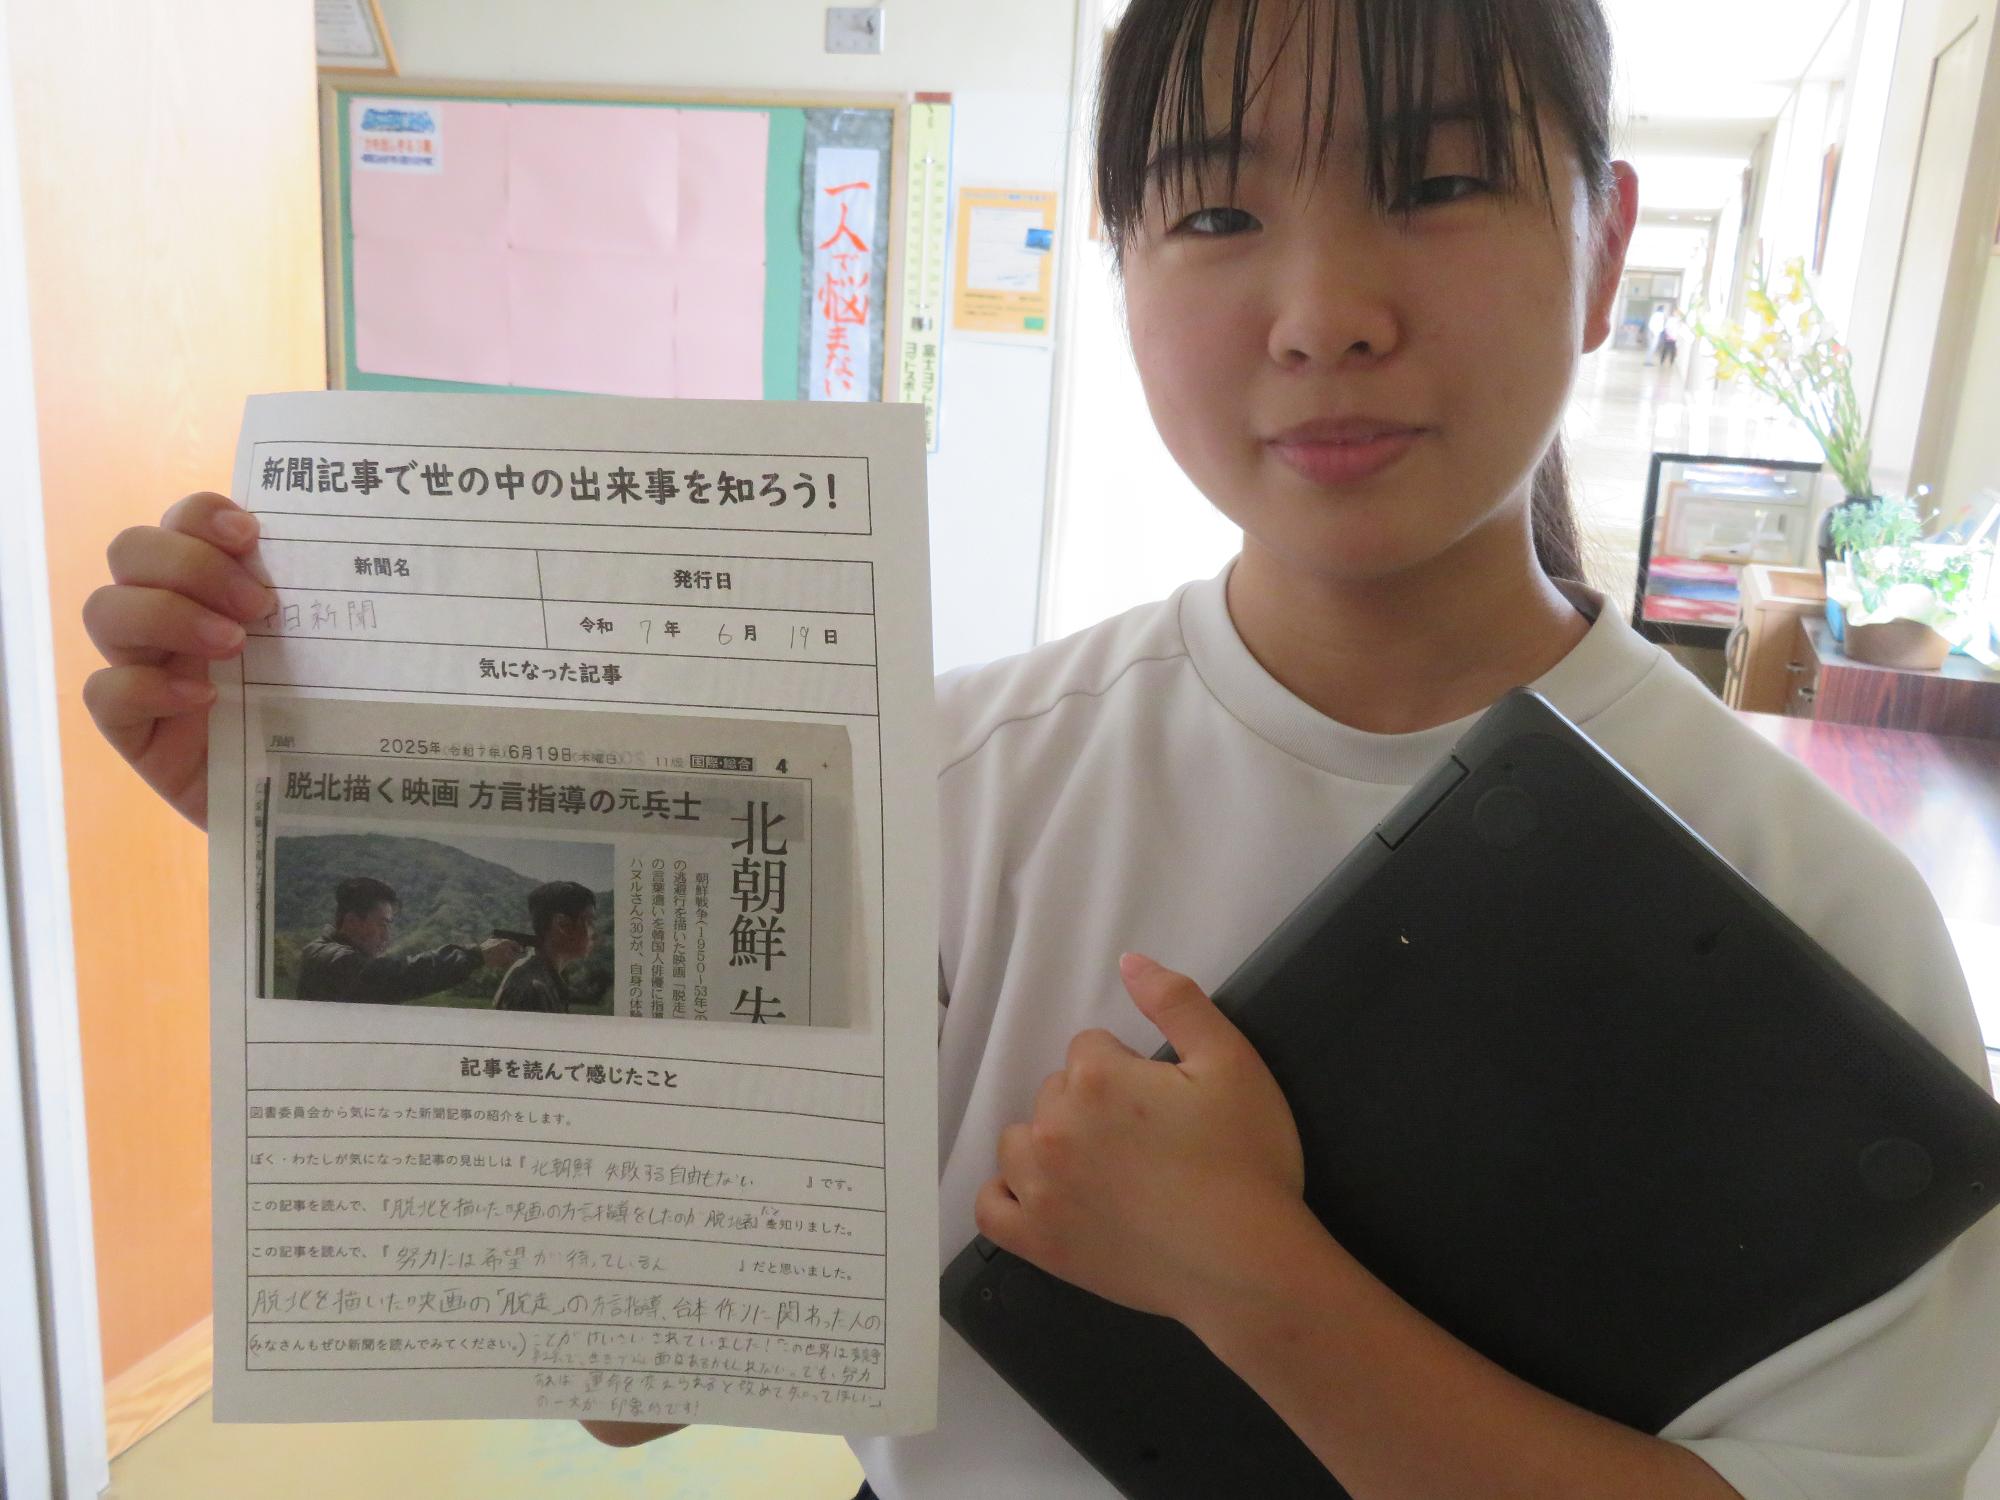 一人で悩まない
新聞記事で世の中の出来事を知ろう!
新聞名
発行日
日新聞
令和 7 年 6 月 19 日
気になった記事
2025年(令和7年)6月19日(木曜日) 11版 国際・総合 4
脱北描く映画 方言指導の元兵士
北朝鮮 失
朝鮮戦争(1950~53年)の
の逃避行を描いた映画「脱走」
の言葉遣いを韓国人俳優に指導
ハヌルさん(30)が、自身の体験
記事を読んで感じたこと
図書委員会から気になった新聞記事の紹介をします。
ぼく・わたしが気になった記事の見出しは『北朝鮮 失敗する自由もない』です。
この記事を読んで、『脱北を描いた映画の方言指導をしたのが脱北者だと』を知りました。
この記事を読んで、『努力には希望が待っている』だと思いました。
脱北を描いた映画の「脱走」の方言指導、台本作りに関わった人の
(みなさんもぜひ新聞を読んでみてください。) ことがけいさいされていました!「この世界は
面はあるかもしれない。でも、努力
すれば運命を変えられると改めて知ってほしい」
の一文が印象的です!